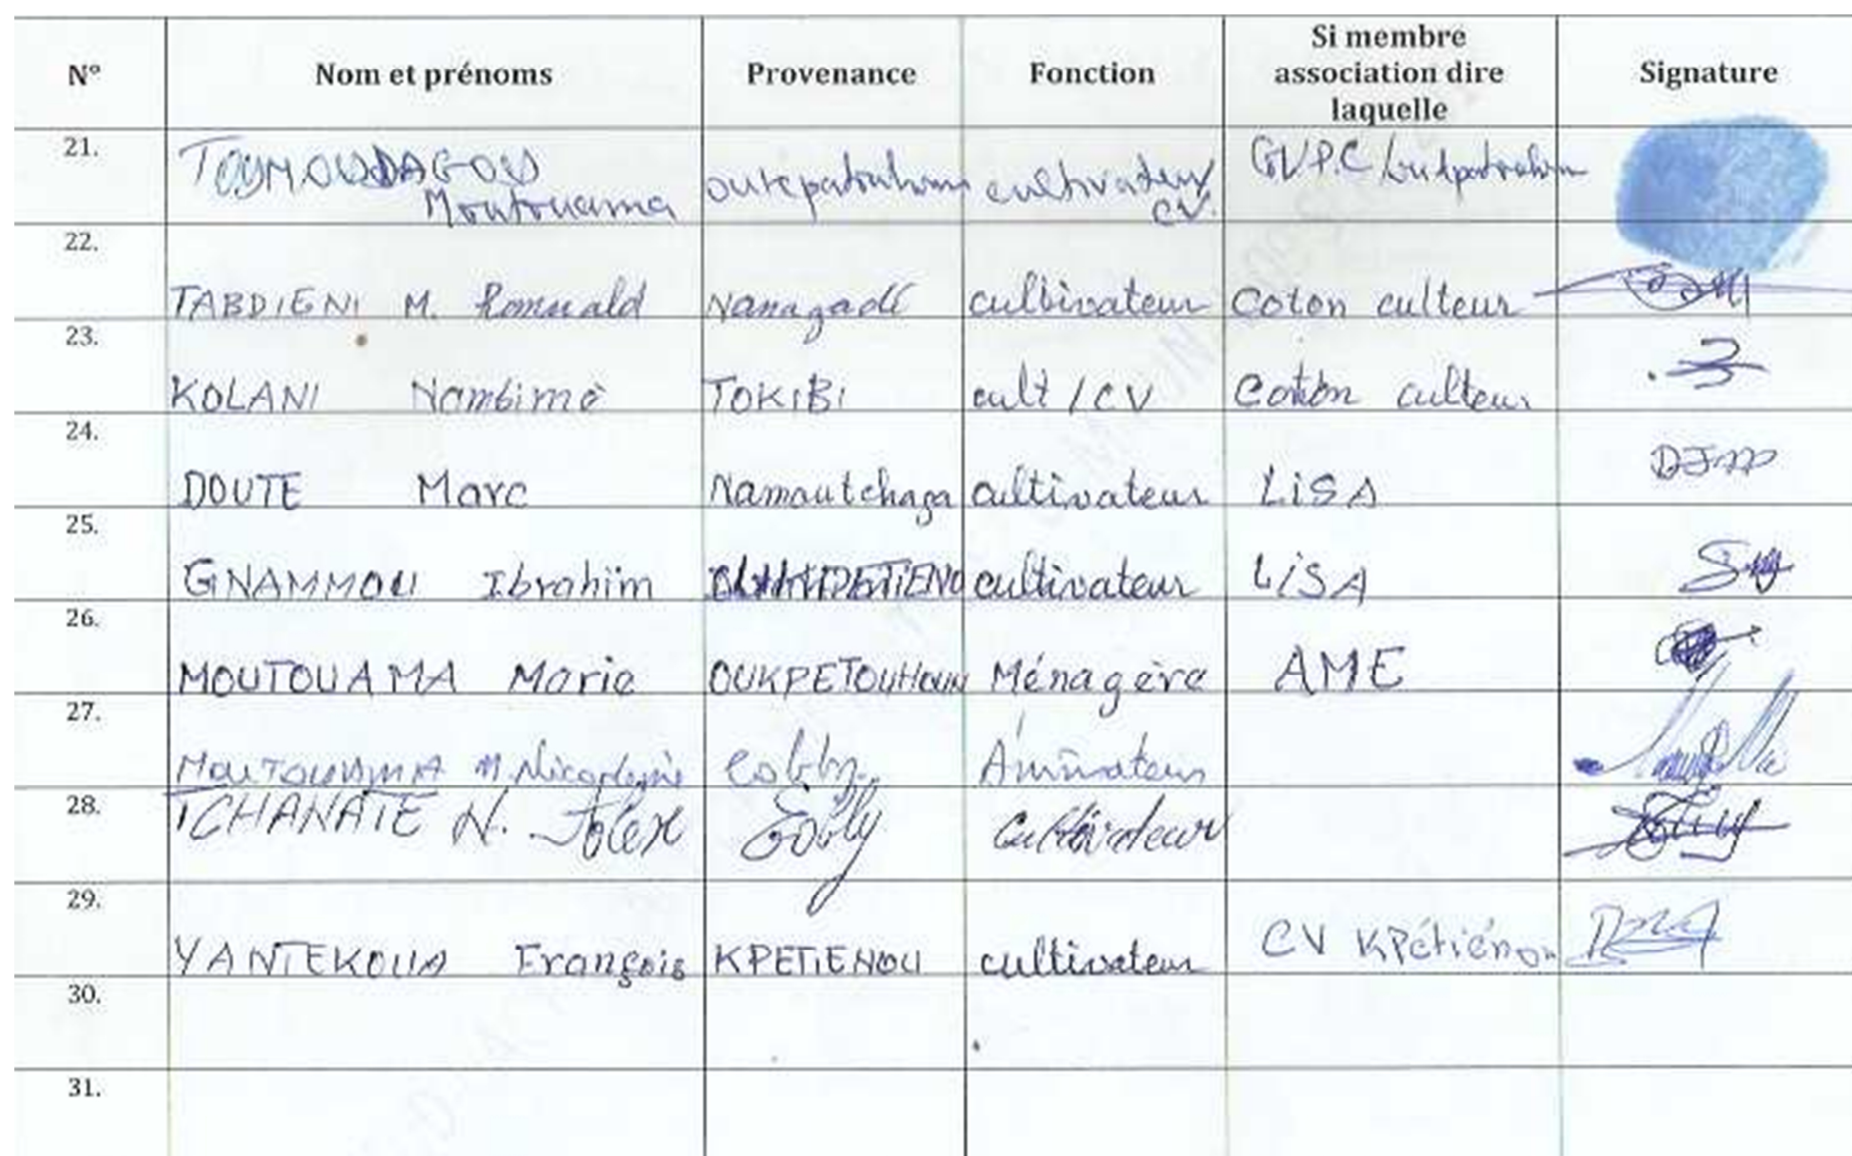 N° Nom et prénoms Provenance Fonction Si membre association dire laquelle Signature
21. Moutouama cultivateur CV. GVPC
22. TABDIENI M. Romuald Nanagadé cultivateur Coton culteur
23. KOLANI Nambimè TOKIBI cult / CV Coton culteur
24. DOUTE Marc Namoutchaga cultivateur LiSA
25. GNAMMOU Ibrahim cultivateur LiSA
26. MOUTOUAMA Marie OUKPETOUHOUN Ménagère AME
27. MOUTOUAMA M. Animateur
28. TCHANATE N. Cultivateur
29. YANTEKOUA François KPETIENOU cultivateur CV KPétiénou
30.
31.